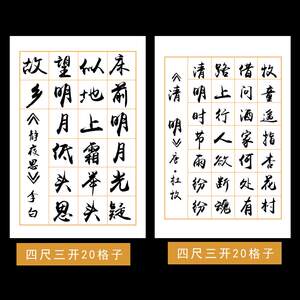 床前明月光疑
似地上霜举头
望明月低头思
故乡《静夜思》李白
四尺三开20格子
《清明》唐·杜牧
清明时节雨纷纷
路上行人欲断魂
借问酒家何处有
牧童遥指杏花村
四尺三开20格子